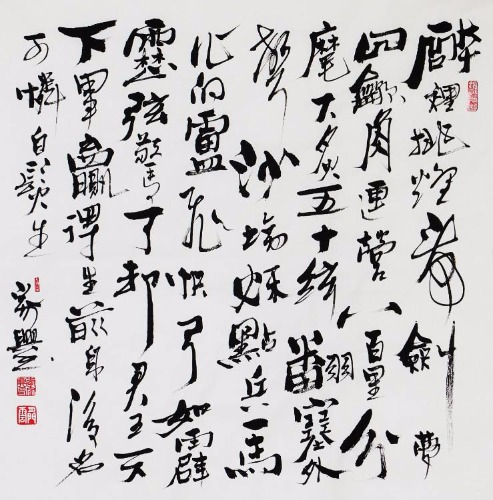 醉裡挑燈看劍夢
回吹角連營八百里分
麾下炙五十絃翻塞外
聲沙場秋點兵馬
作的盧飛快弓如霹
靂弦驚了却君王天
下事贏得生前身後名
可憐白髮生